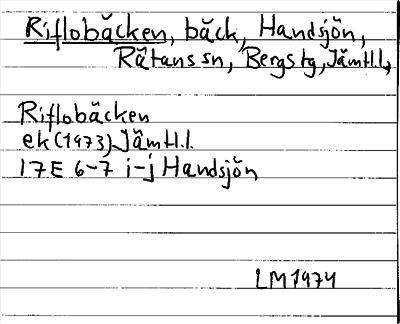 Riflobäcken, bäck, Handsjön,
Rätans sn, Bergs tg, Jämtl.l.,
Riflobäcken
ek (1973) Jämtl.l.
17E 6-7 i-j Handsjön
LM 1974